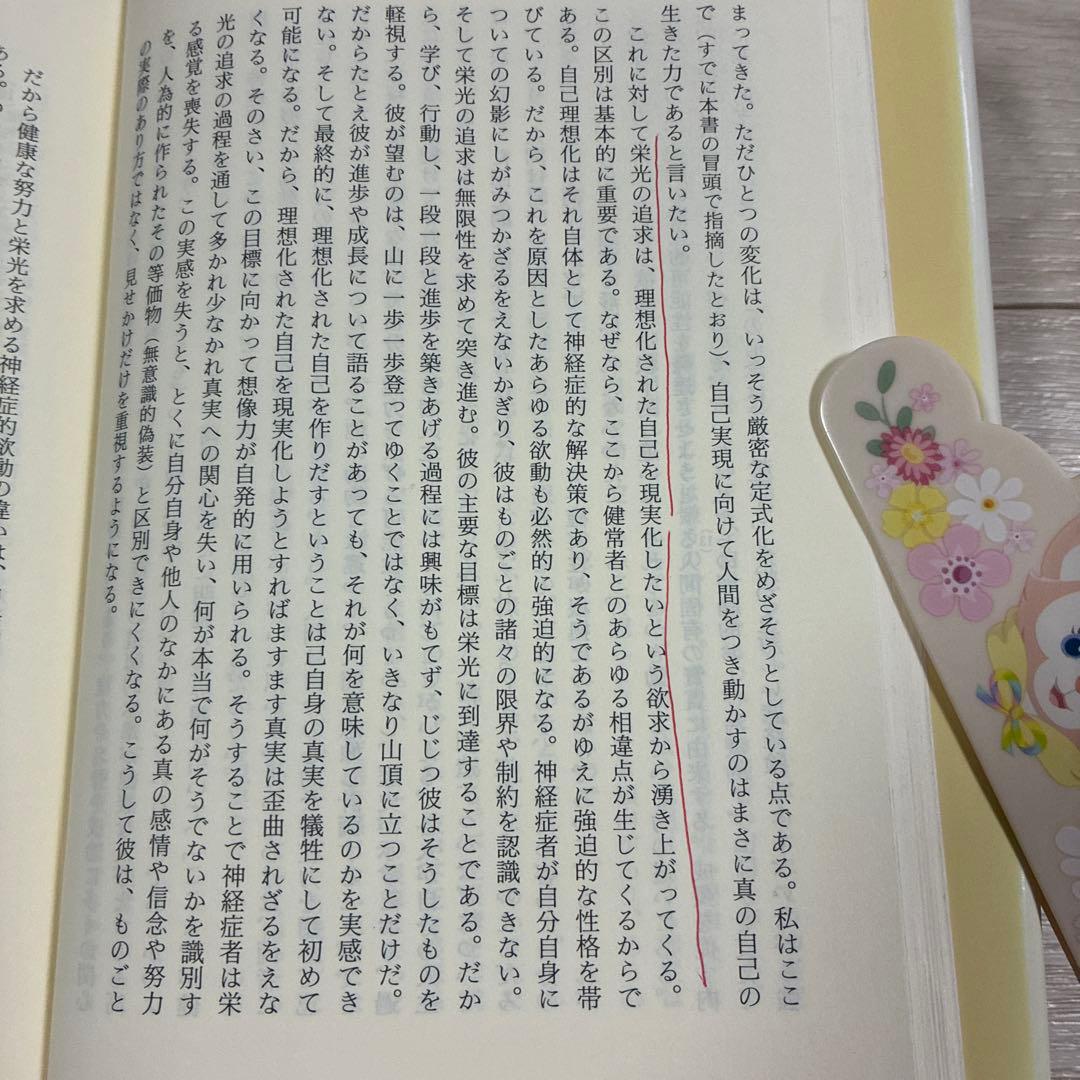 まってきた。ただひとつの変化は、いっそう厳密な定式化をめざそうとしている点である。私はここ
で（すでに本書の冒頭で指摘したとおり）、自己実現に向けて人間をつき動かすのはまさに真の自己の
生きた力であると言いたい。
これに対して栄光の追求は、理想化された自己を現実化したいという欲求から湧き上がってくる。
この区別は基本的に重要である。なぜなら、ここから健常者とのあらゆる相違点が生じてくるからで
ある。自己理想化はそれ自体として神経症的な解決策であり、そうであるがゆえに強迫的な性格を帯
びている。だから、これを原因としたあらゆる欲動も必然的に強迫的になる。神経症者が自分自身に
ついての幻影にしがみつかざるをえないかぎり、彼はものごとの諸々の限界や制約を認識できない。
そして栄光の追求は無限性を求めて突き進む。彼の主要な目標は栄光に到達することである。だか
ら、学び、行動し、一段一段と進歩を築きあげる過程には興味がもてず、じじつ彼はそうしたものを
軽視する。彼が望むのは、山に一歩一歩登ってゆくことではなく、いきなり山頂に立つことだけだ。
だからたとえ彼が進歩や成長について語ることがあっても、それが何を意味しているのかを実感でき
ない。そして最終的に、理想化された自己を作りだすということは己自身の真実を犠牲にして初めて
可能になる。だから、理想化された自己を現実化しようとすればますます真実は歪曲されざるをえな
くなる。そのさい、この目標に向かって想像力が自発的に用いられる。そうすることで神経症者は栄
光の追求の過程を通して多かれ少なかれ真実への関心を失い、何が本当で何がそうでないかを識別す
る感覚を喪失する。この実感を失うと、とくに自分自身や他人のなかにある真の感情や信念や努力
を、人為的に作られたその等価物（無意識的偽装）と区別できにくくなる。こうして彼は、ものごと
の実際のあり方ではなく、見せかけだけを重視するようになる。
だから健康な努力と栄光を求める神経症的欲動の違いは、
ある。